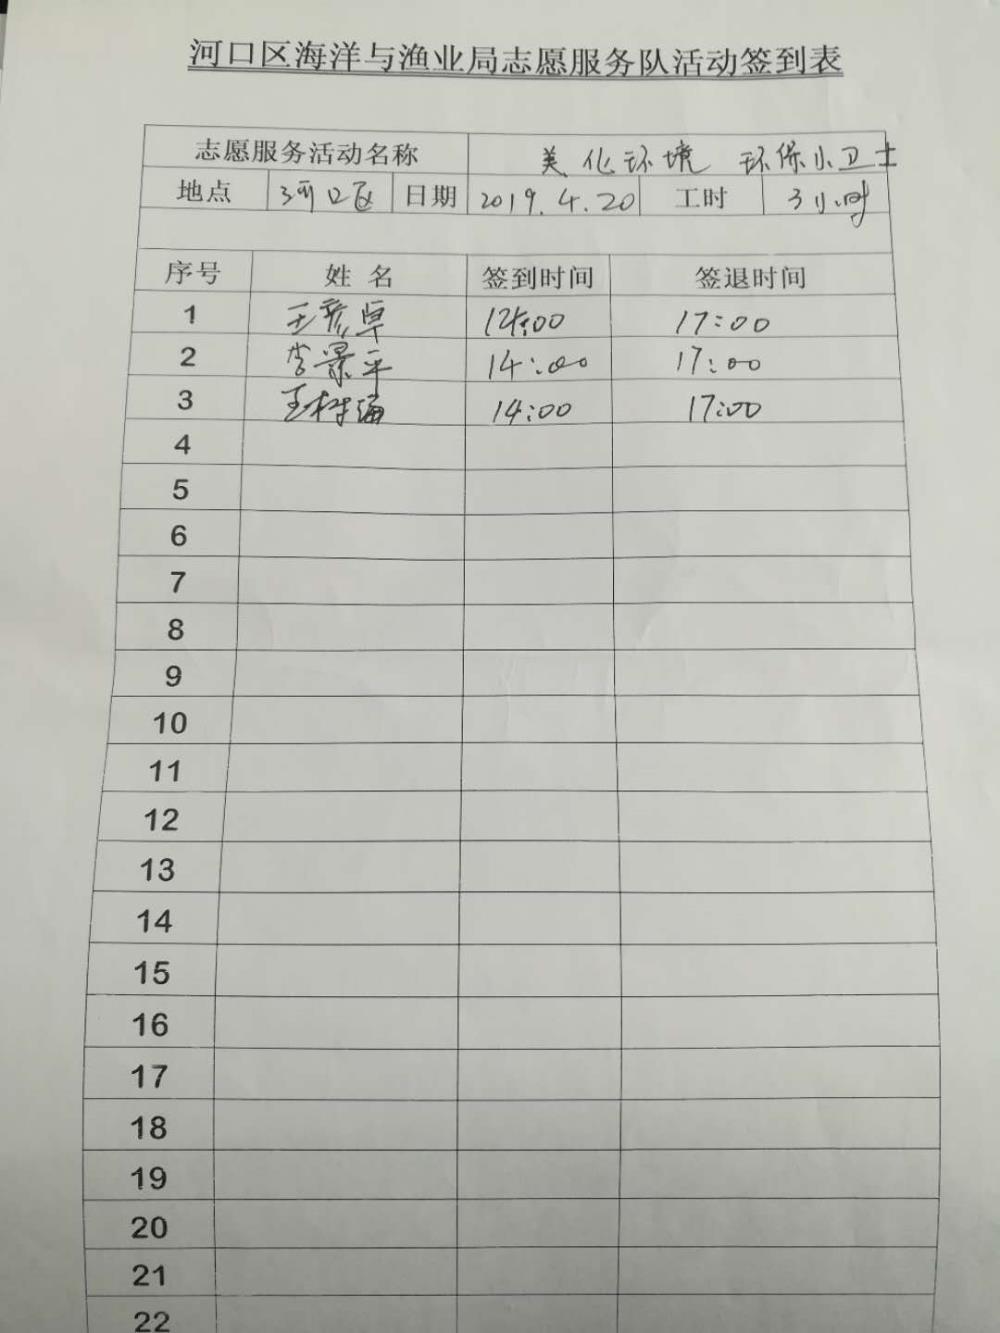 河口区海洋与渔业局志愿服务队活动签到表
志愿服务活动名称 美化环境 环保小卫士
地点 河口区 日期 2019.4.20 工时 3小时
序号 姓名 签到时间 签退时间
1 王彦卓 14:00 17:00
2 李景平 14:00 17:00
3 王树海 14:00 17:00
4
5
6
7
8
9
10
11
12
13
14
15
16
17
18
19
20
21
22